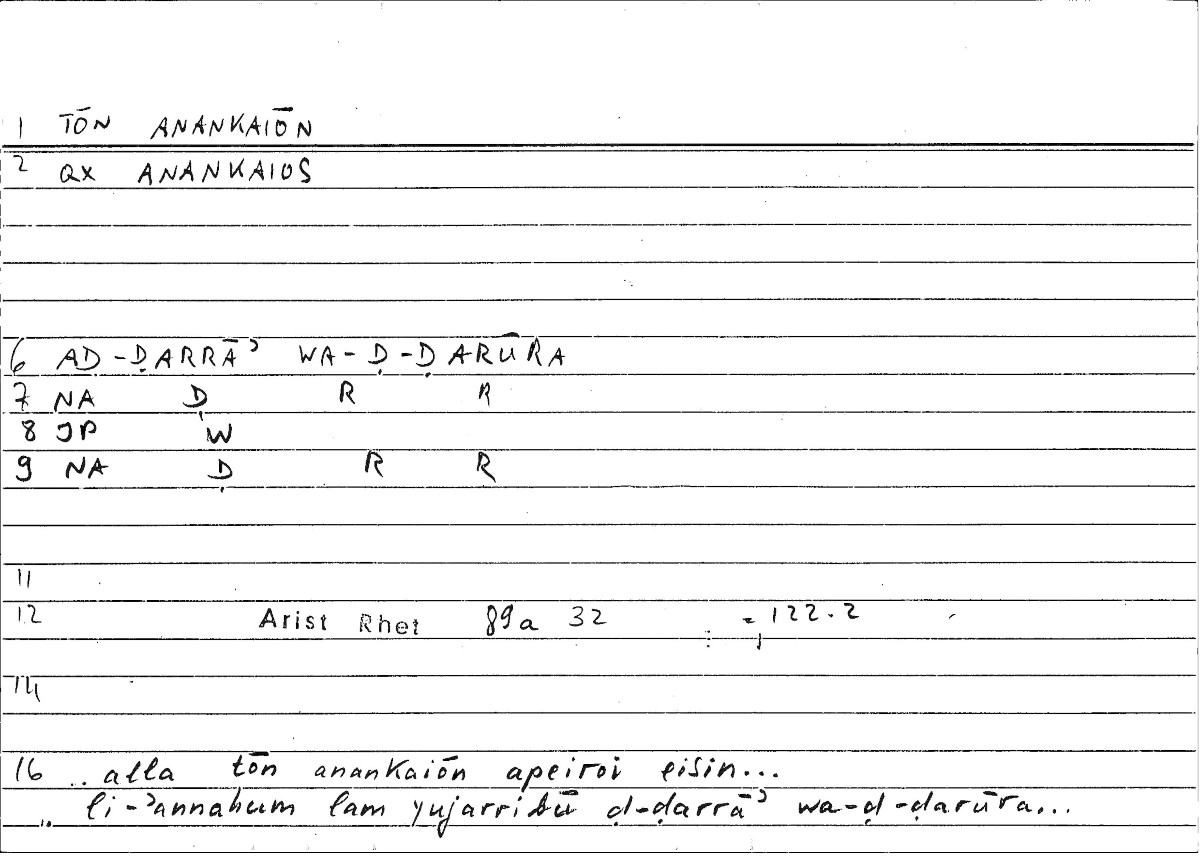 1 TŌN ANANKAIŌN
2 QX ANANKAIOS
6 AḌ-ḌARRĀʾ WA-Ḍ-ḌARŪRA
7 NA Ḍ R R
8 JP W
9 NA Ḍ R R
11
12 Arist Rhet 89a 32 = 122.2
14
16 ..alla tōn anankaiōn apeiroi eisin...
,, li-ʾannahum lam yujarribū ḍ-ḍarrāʾ wa-ḍ-ḍarūra...